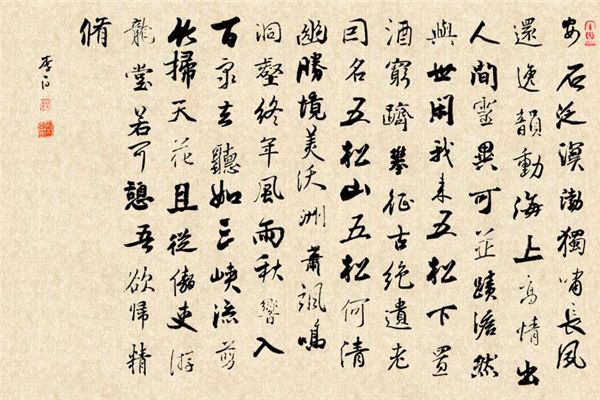 安石泛溟渤獨嘯長風
還逸韻動海上高情出
人間靈異可並蹟澹然
與世閑我来五松下置
酒窮躋攀征古絶遺老
因名五松山五松何清
幽勝境美沃洲蕭颯鳴
洞壑終年風雨秋響入
百泉去聽如三峽流剪
竹掃天花且從傲吏游
龍堂若可憩吾欲歸精
脩
李白